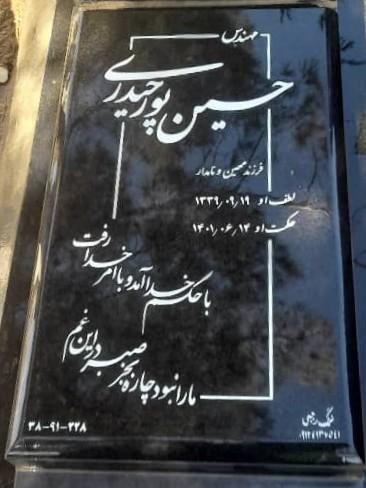 مهندس
حسین پورحیدری
فرزند معین و نامدار
لطف او ۱۳۳۹/۰۹/۱۹
حکمت او ۱۴۰۱/۰۶/۱۴
با حکم خدا آمد و با امر خدا رفت
ما را نبود چاره بجز صبر در این غم
۳۸-۹۱-۲۲۸